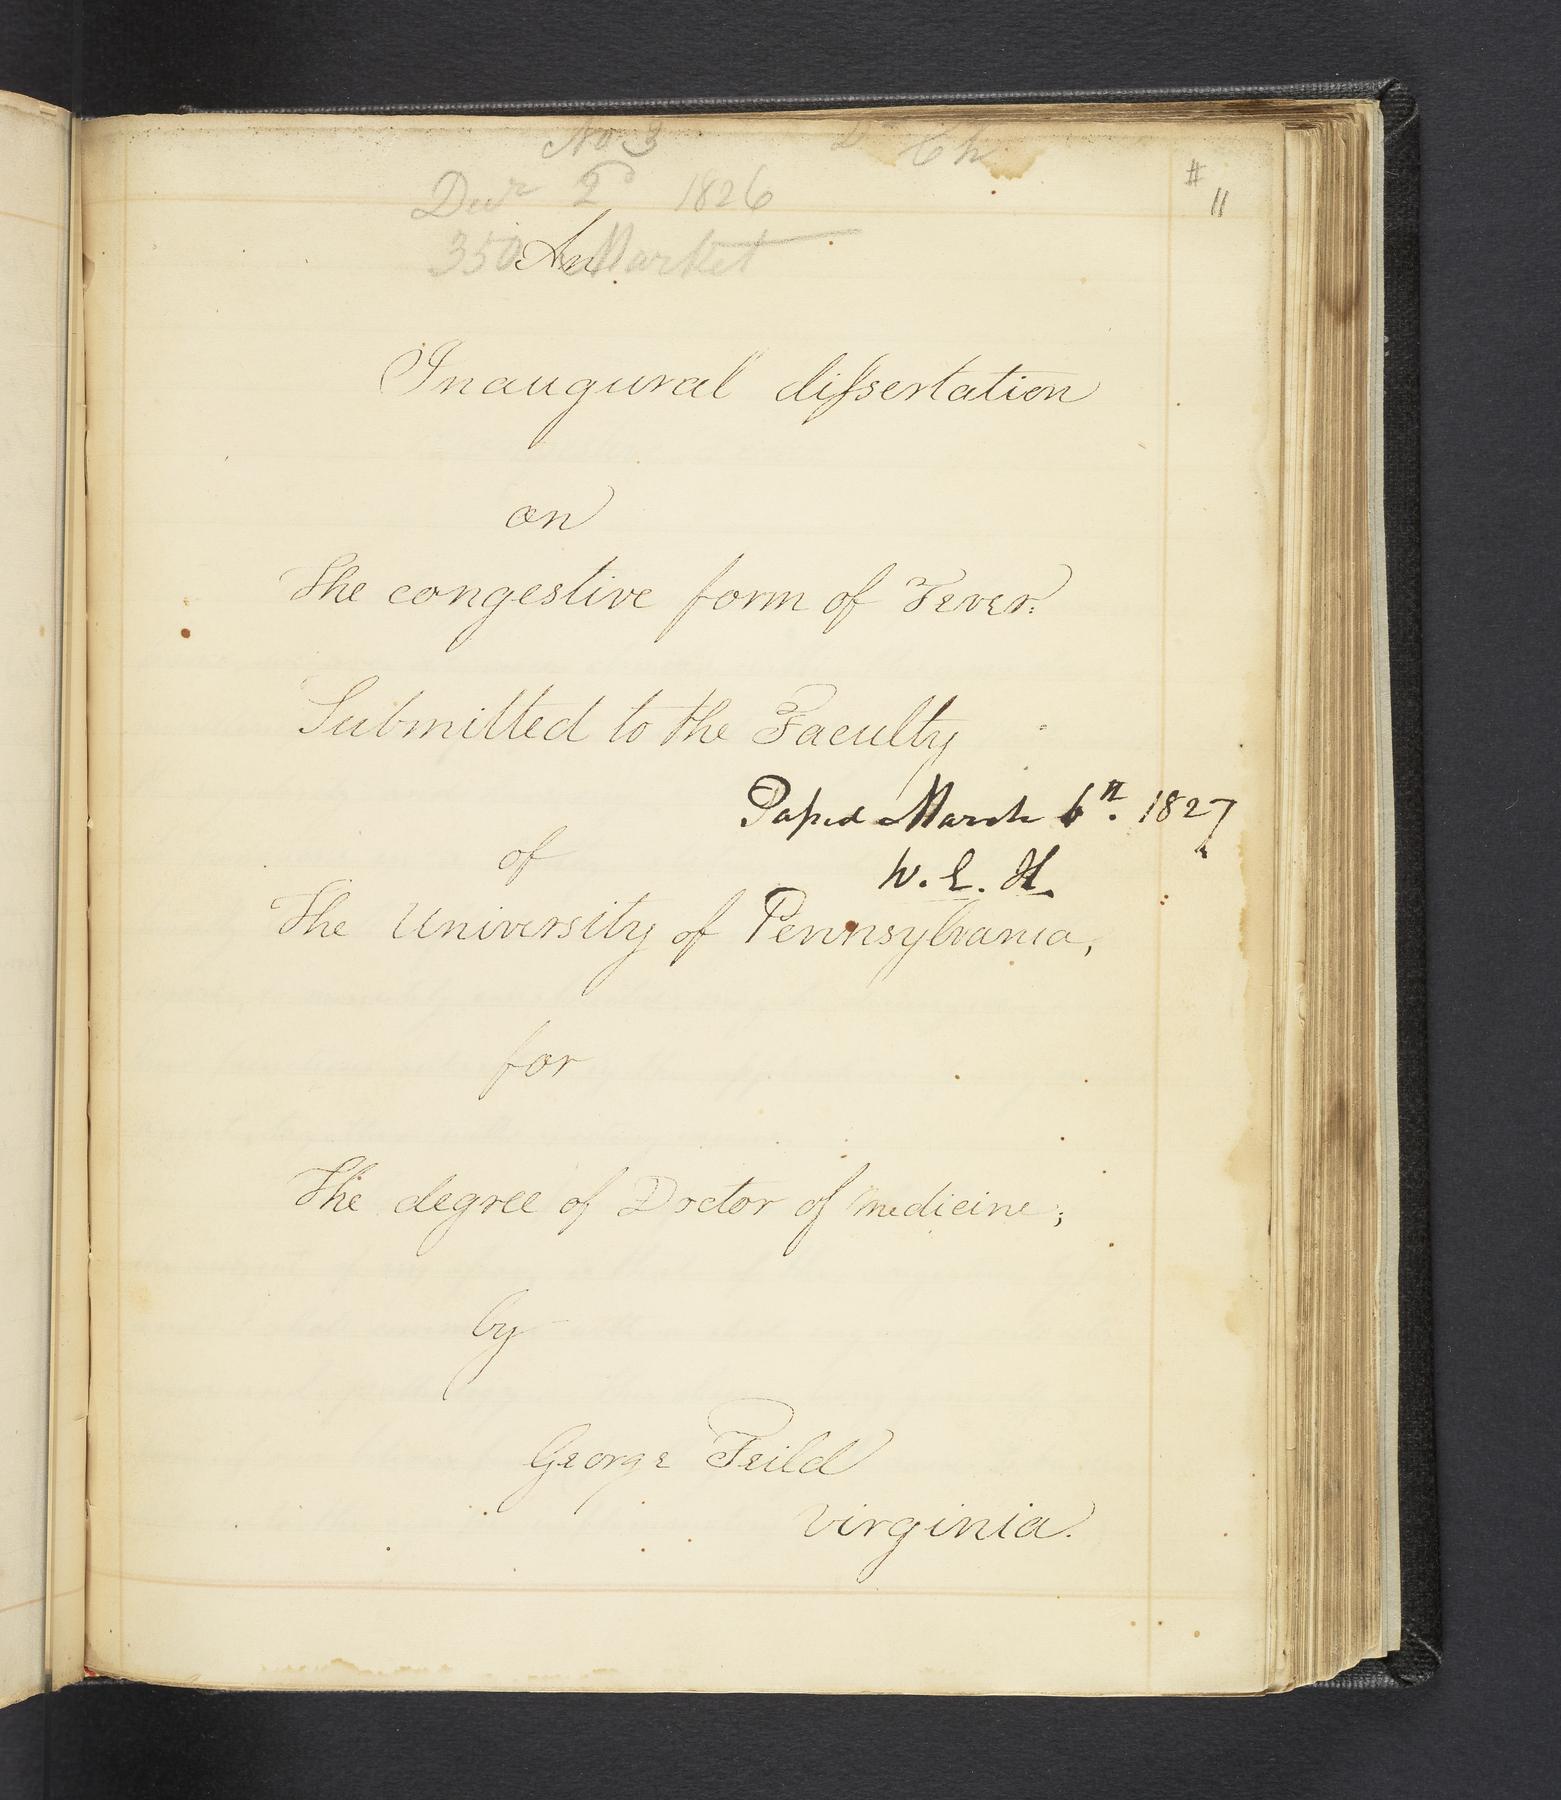 No 3 Dr Ch
#
11
Decr 2d 1826
350 Market
An
Inaugural dissertation
on
The congestive form of Fever.
Submitted to the Faculty
Passed March 6th. 1827
W. E. H.
of
The University of Pennsylvania,
for
The degree of Doctor of medicine;
by
George Feild
Virginia.